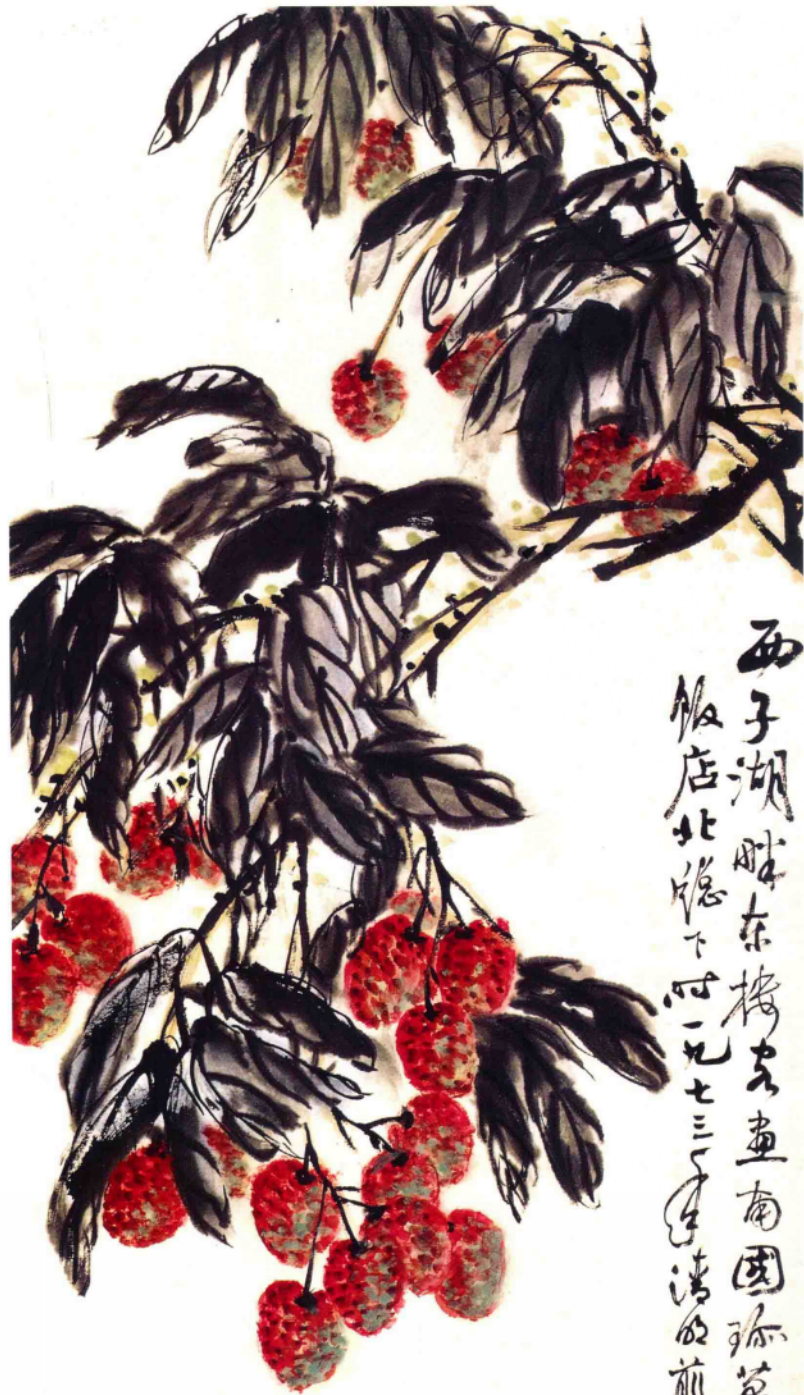 西子湖畔东楼客画南國珎
饭店北窓下时一九七三年清明前